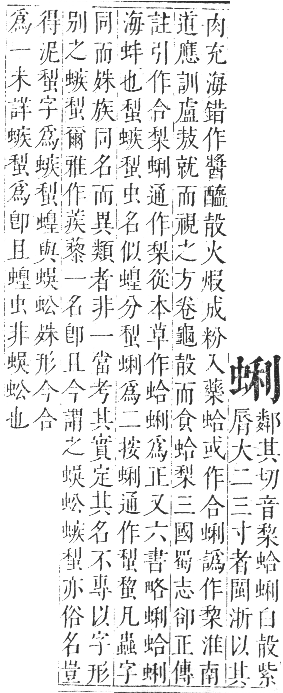 蜊
鄰其切音棃蛤蜊白殼紫
脣大二三寸者閩浙以其
肉充海錯作醬醯殼火煆成粉入藥蛤或作合蜊譌作黎淮南
道應訓盧敖就而視之方卷龜殼而食蛤棃三國蜀志郤正傳
註引作合棃蜊通作棃從本草作蛤蜊爲正又六書略蜊蛤蜊
海蚌也蟍螏蟍虫名似蝗分蟍蜊爲二按蜊通作蟍蟸凡蟲字
同而姝族同名而異類者非一當考其實定其名不專以字形
別之螏蟍爾雅作蒺藜一名卽且今謂之蜈蚣螏蟍亦俗名豈
得泥蟍字爲螏蟍蝗與蜈蚣姝形今合
爲一未詳螏蟍爲卽且蝗虫非蜈蚣也